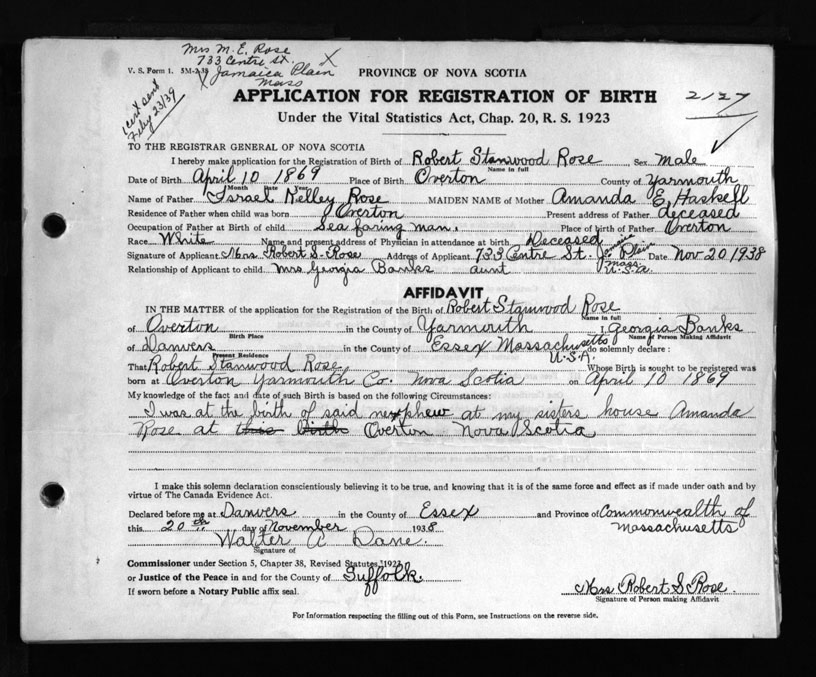 Mrs M. E. Rose
733 Centre St. X
V. S. Form 1. 5M-2-38 X Jamaica Plain
Mass
1 cert sent
Feby 23/39
PROVINCE OF NOVA SCOTIA
APPLICATION FOR REGISTRATION OF BIRTH 2127
Under the Vital Statistics Act, Chap. 20, R. S. 1923
TO THE REGISTRAR GENERAL OF NOVA SCOTIA
I hereby make application for the Registration of Birth of Robert Stanwood Rose, Sex male
Name in full
Date of Birth April 10 1869 Place of Birth Overton County of Yarmouth
Month Date Year
Name of Father Israel Kelley Rose MAIDEN NAME of Mother Amanda E. Haskell
Residence of Father when child was born Overton Present address of Father deceased
Occupation of Father at Birth of child Sea faring man. Place of birth of Father Overton
Race White Name and present address of Physician in attendance at birth Deceased
Signature of Applicant Mrs Robert S. Rose Address of Applicant 733 Centre St. Jamaica Plain Mass. U.S.A. Date Nov 20 1938
Relationship of Applicant to child Mrs Georgia Banks aunt
AFFIDAVIT
IN THE MATTER of the application for the Registration of the Birth of Robert Stanwood Rose
Name in full
of Overton in the County of Yarmouth I, Georgia Banks
Birth Place Name of Person Making Affidavit
of Danvers in the County of Essex Massachusetts U.S.A. do solemnly declare:
Present Residence
That Robert Stanwood Rose Whose Birth is sought to be registered was
born at Overton Yarmouth Co. Nova Scotia on April 10 1869
My knowledge of the fact and date of such Birth is based on the following Circumstances:
I was at the birth of said nephew at my sisters house Amanda
Rose at this birth Overton Nova Scotia
I make this solemn declaration conscientiously believing it to be true, and knowing that it is of the same force and effect as if made under oath and by
virtue of The Canada Evidence Act.
Declared before me at Danvers in the County of Essex and Province of Commonwealth of
this 20th day of November 1938 Massachusetts
Walter A Dane.
Signature of
Commissioner under Section 5, Chapter 38, Revised Statutes, 1923
or Justice of the Peace in and for the County of Suffolk.
If sworn before a Notary Public affix seal.
Mrs Robert S. Rose.
Signature of Person making Affidavit
For Information respecting the filling out of this Form, see Instructions on the reverse side.